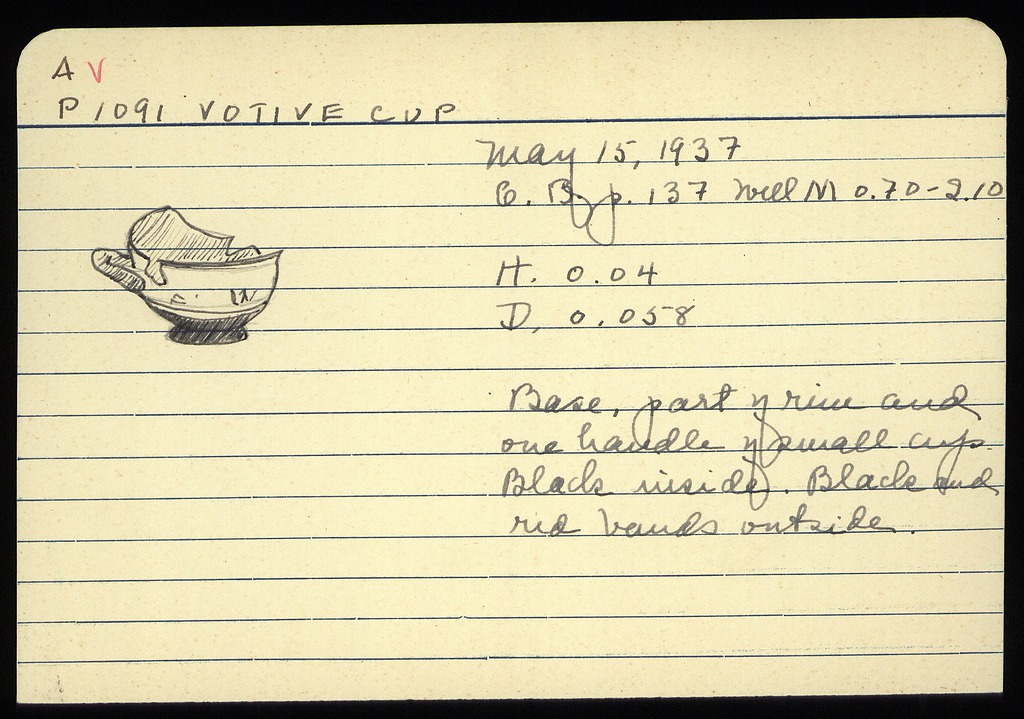 A V
P 1091 VOTIVE CUP
May 15, 1937
C. B. p. 137 Well M 0.70-2.10
H. 0.04
D. 0.058
Base, part of rim and
one handle of small cup.
Black inside. Black and
red bands outside.